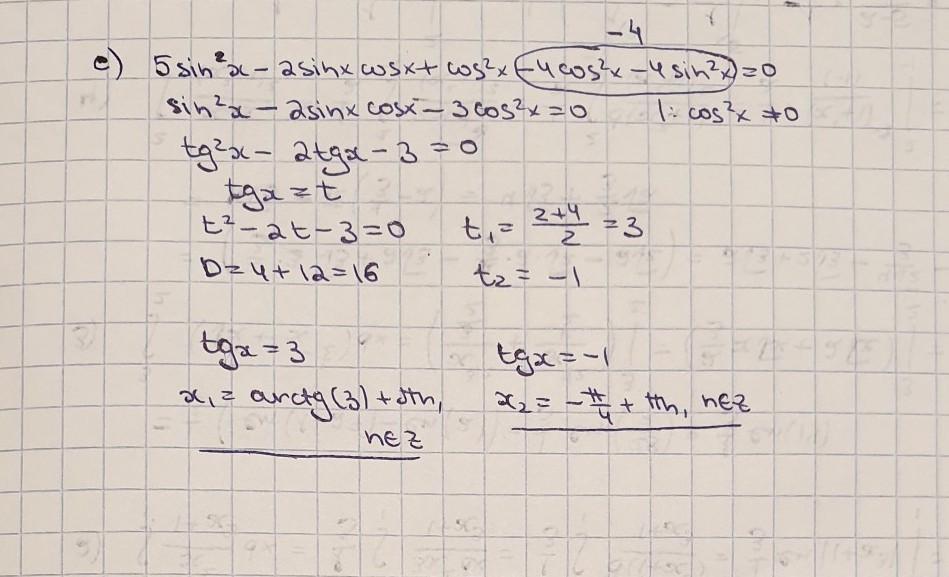 -4
e) 5sin²x - 2sinx cosx + cos²x -4cos²x - 4sin²x = 0
sin²x - 2sinx cosx - 3cos²x = 0 |: cos²x ≠ 0
tg²x - 2tgx - 3 = 0
tgx = t
t² - 2t - 3 = 0 t₁ = (2+4)/2 = 3
D = 4 + 12 = 16 t₂ = -1
tgx = 3 tgx = -1
x₁ = arctg(3) + πn, x₂ = -π/4 + πn, n∈Z
n∈Z